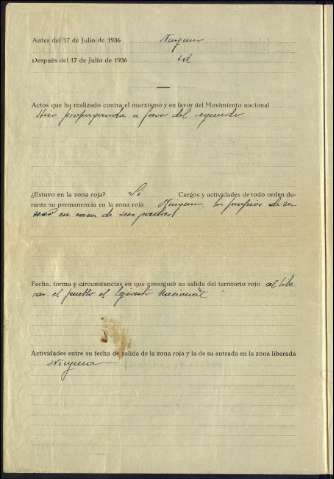 Antes del 17 de Julio de 1936 Ninguno
Después del 17 de Julio de 1936 id
Actos que ha realizado contra el marxismo y en favor del Movimiento nacional
Hizo propaganda a favor del
¿Estuvo en la zona roja? Si Cargos y actividades de todo orden du-
rante su permanencia en la zona roja Ninguno, la profesión de
en casa de sus padres
Fecha, forma y circunstancias en que consiguió su salida del territorio rojo al libe-
rar el pueblo el Ejército Nacional
Actividades entre su fecha de salida de la zona roja y la de su entrada en la zona liberada
Ninguna